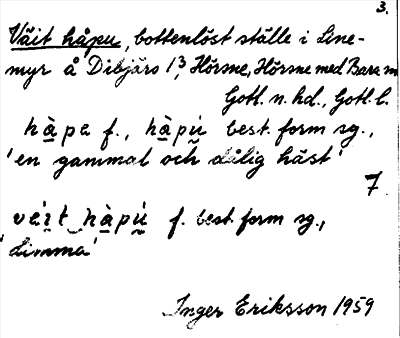 3.
Väit håpu, bottenlöst ställe i Line-
myr å Dibjärs 1³, Hörsne, Hörsne med Bara sn
Gotl. n. hd., Gotl. l.
hàpa f., hàpú best. form sg.,
'en gammal och dålig häst'
7.
véit hàpú f. best. form sg.,
'dimma'
Inger Eriksson 1959